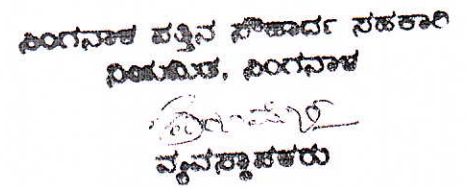 ಸಿಂಗನಾಳ ಪತ್ತಿನ ಸೌಹಾರ್ದ ಸಹಕಾರಿ
ನಿಯಮಿತ, ಸಿಂಗನಾಳ
ವ್ಯವಸ್ಥಾಪಕರು